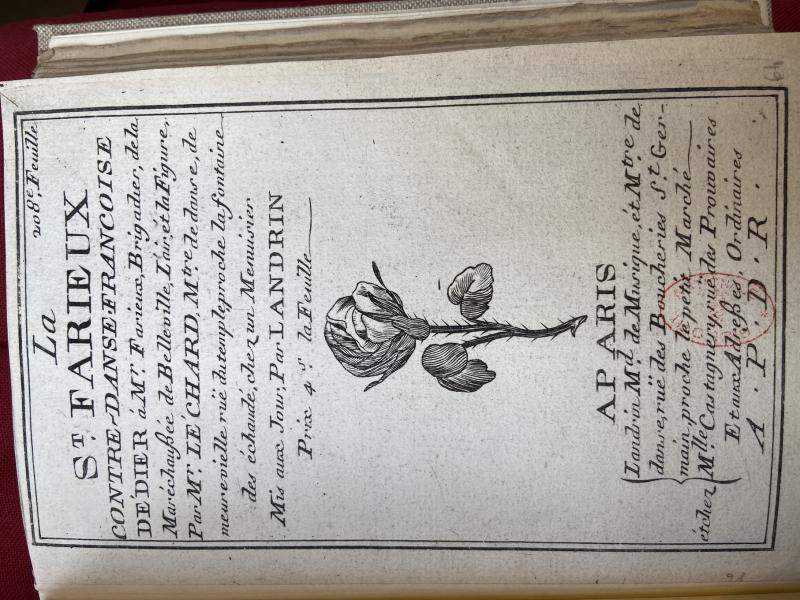 208.e Feuille
La
S.T FARIEUX
CONTRE-DANSE-FRANCOISE
DÉDIER á M.r Farieux, Brigadier, de la
Maréchaußée de Belleville, L'air, et la Figure,
Par M.r LE CHARD, M.tre de danse, de
meure vielle ruë du temple, proche la fontaine
des échaudé, chez un Menuisier
Mis aux Jour, Par LANDRIN
Prix 4 s. la Feuille
A PARIS
Landrin M.d de Musique, ét M.tre de
danse, ruë des Boucheries S.t Ger-
main, proche le petit Marché
étchez M.lle Castagnery, ruë, des Prouvaires
Et aux Adreßes, Ordinaires
A . P . D . R .
64